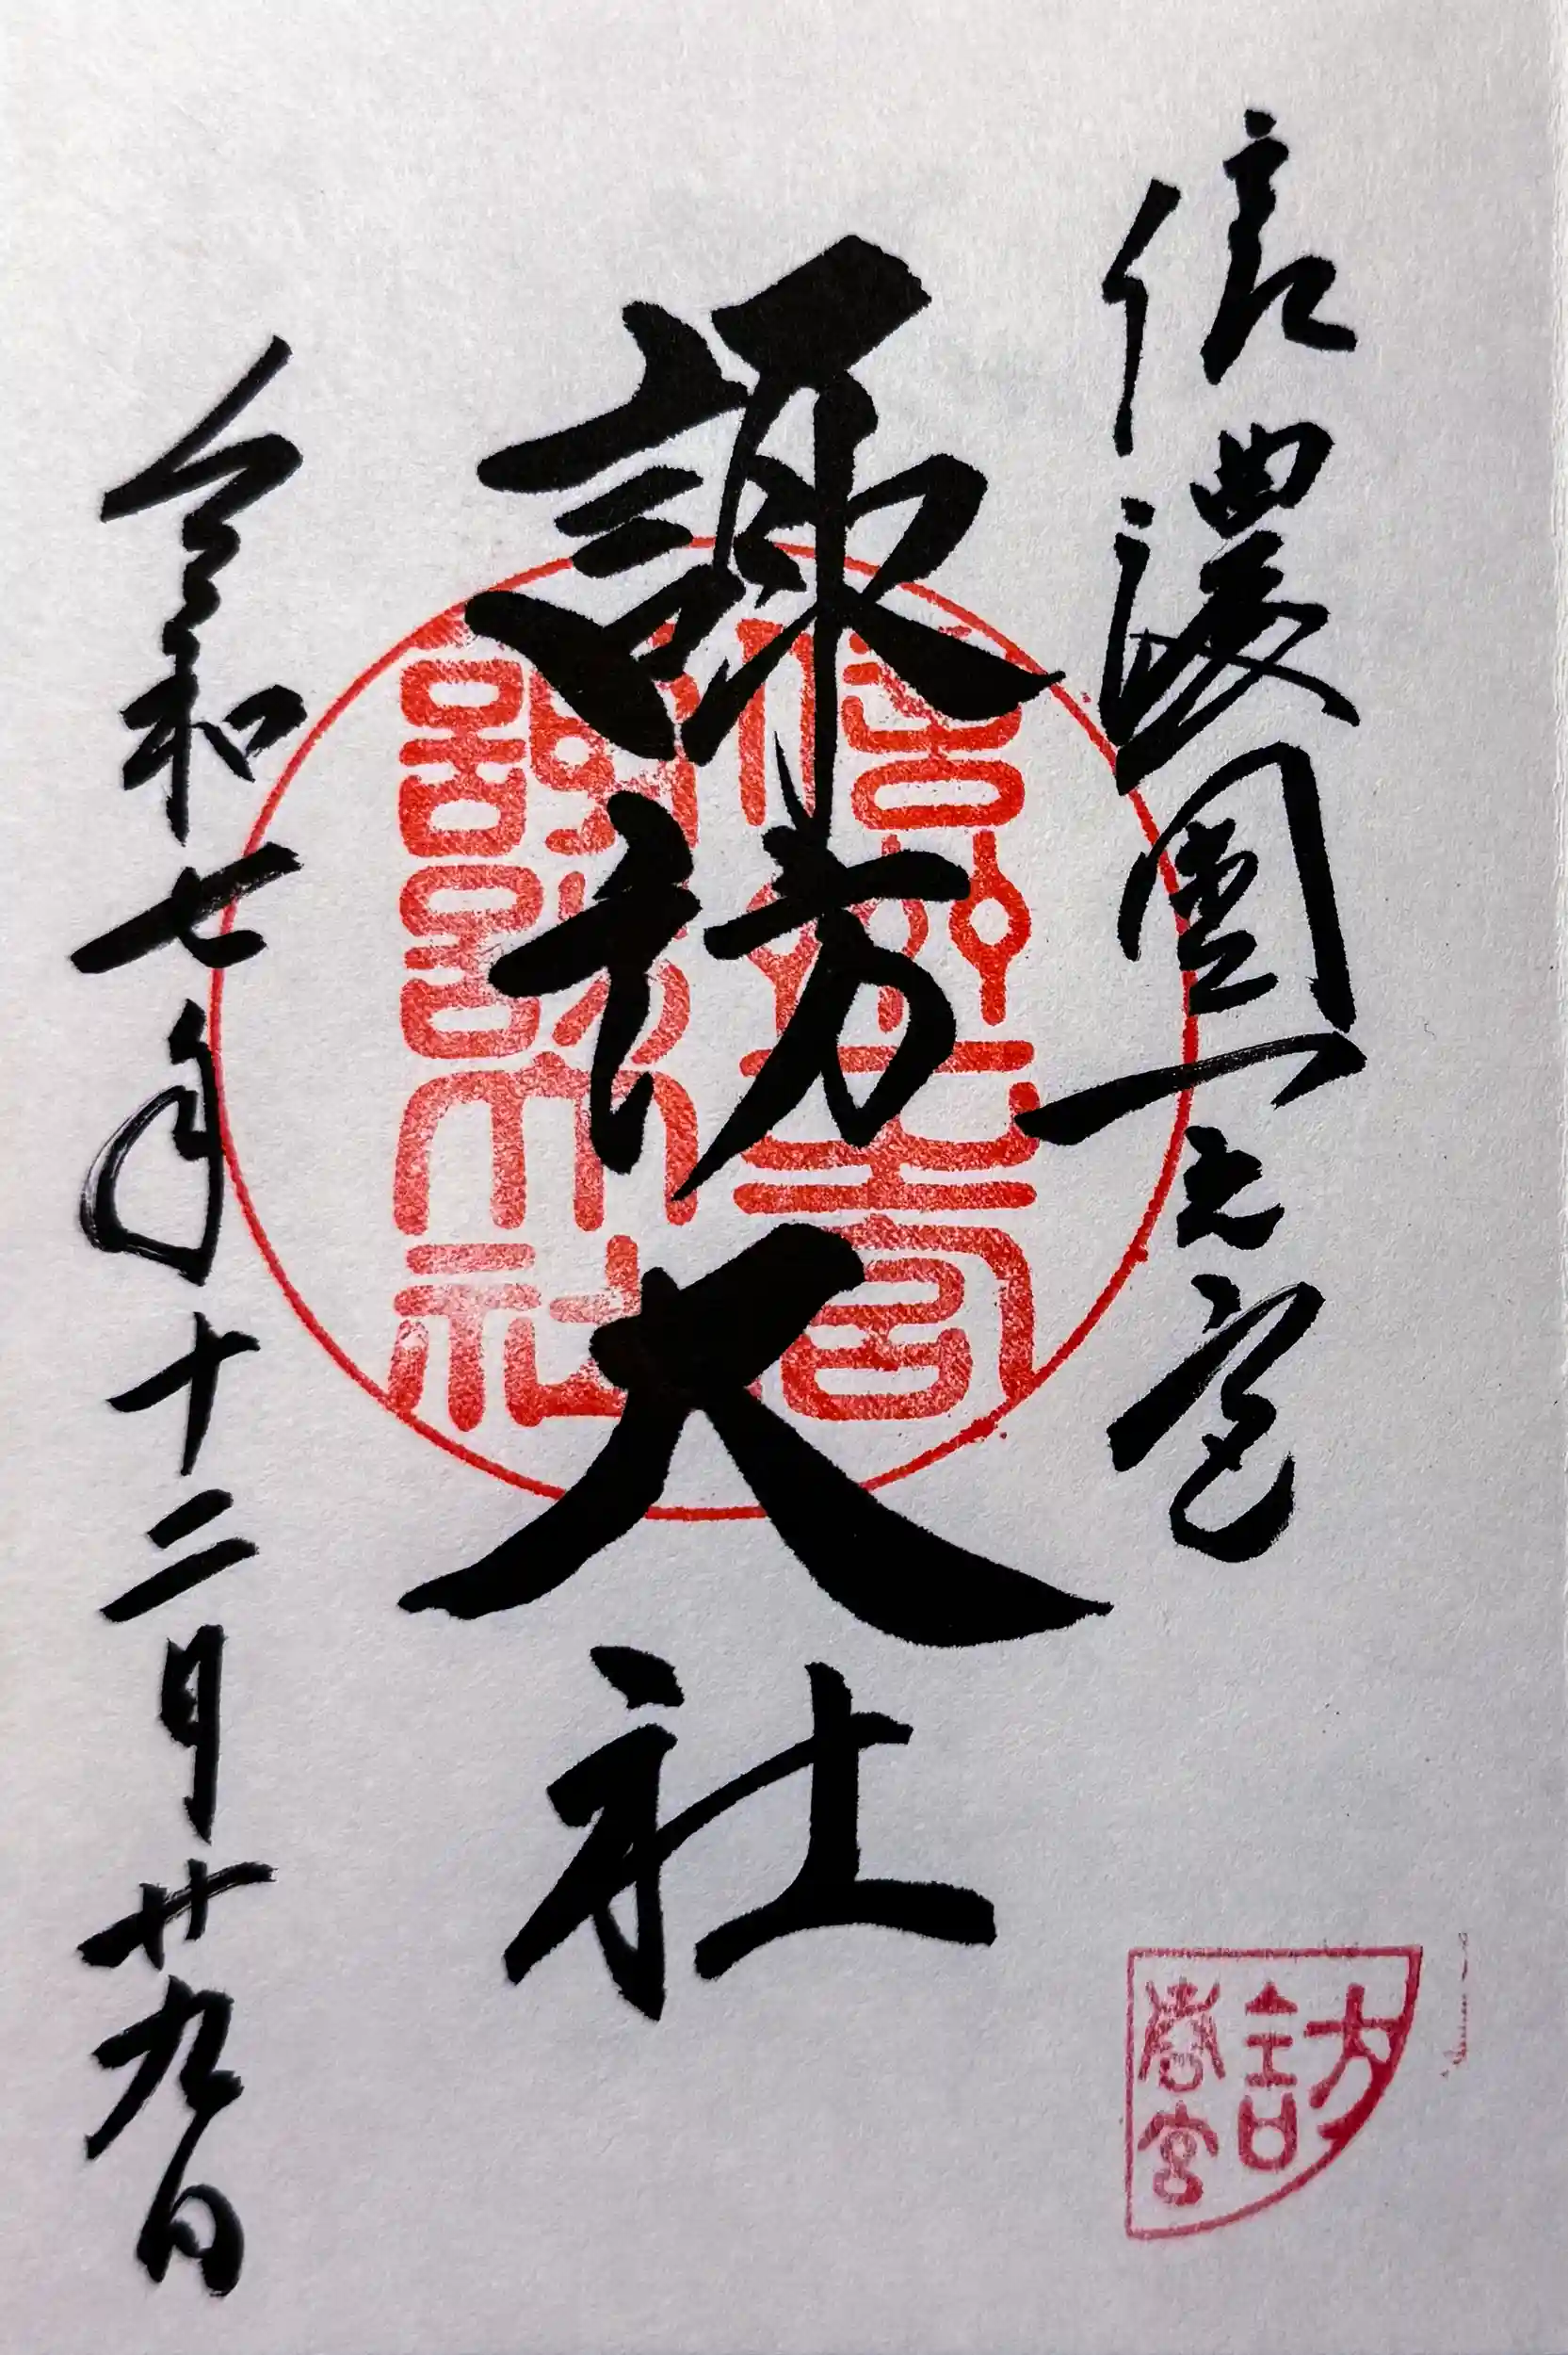 信濃國一之宮
諏訪大社
令和七年十二月廿九日
信州一之宮
諏訪大社
訪
春宮